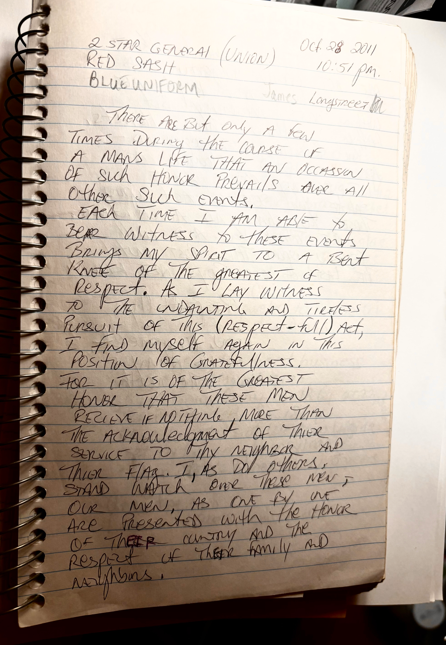 2 STAR GENERAL (UNION) Oct 28 2011
RED SASH 10:51 pm.
BLUE UNIFORM James Longstreet
THERE ARE BUT ONLY A FEW
TIMES DURING the COURSE OF
A MANS LIFE THAT AN OCCASSION
OF SUCH HONOR PREVAILS OVER ALL
OTHER SUCH EVENTS.
EACH TIME I AM ABLE to
BEAR WITNESS to THESE EVENTS
BRINGS MY SPIRIT TO A BENT
KNEE OF THE GREATEST OF
RESPECT. AS I LAY WITNESS
TO THE UNDAUNTING AND TIRELESS
PURSUIT OF THIS (RESPECT-full) ACT,
I FIND MYSELF AGAIN IN THIS
POSITION OF GRATEFULLNESS.
FOR IT IS OF THE GREATEST
HONOR THAT THESE MEN
RECIEVE IF NOTHING MORE THAN
THE ACKNOWLEDGMENT OF THIER
SERVICE TO THY NEIGHBOR AND
THIER FLAG. I, AS DO OTHERS,
STAND WATCH OVER THESE MEN,
OUR MEN, AS ONE BY ONE
ARE PRESENTED WITH the HONOR
OF THEIR COUNTRY AND THE
RESPECT OF THEIR FAMILY AND
NEIGHBORS.